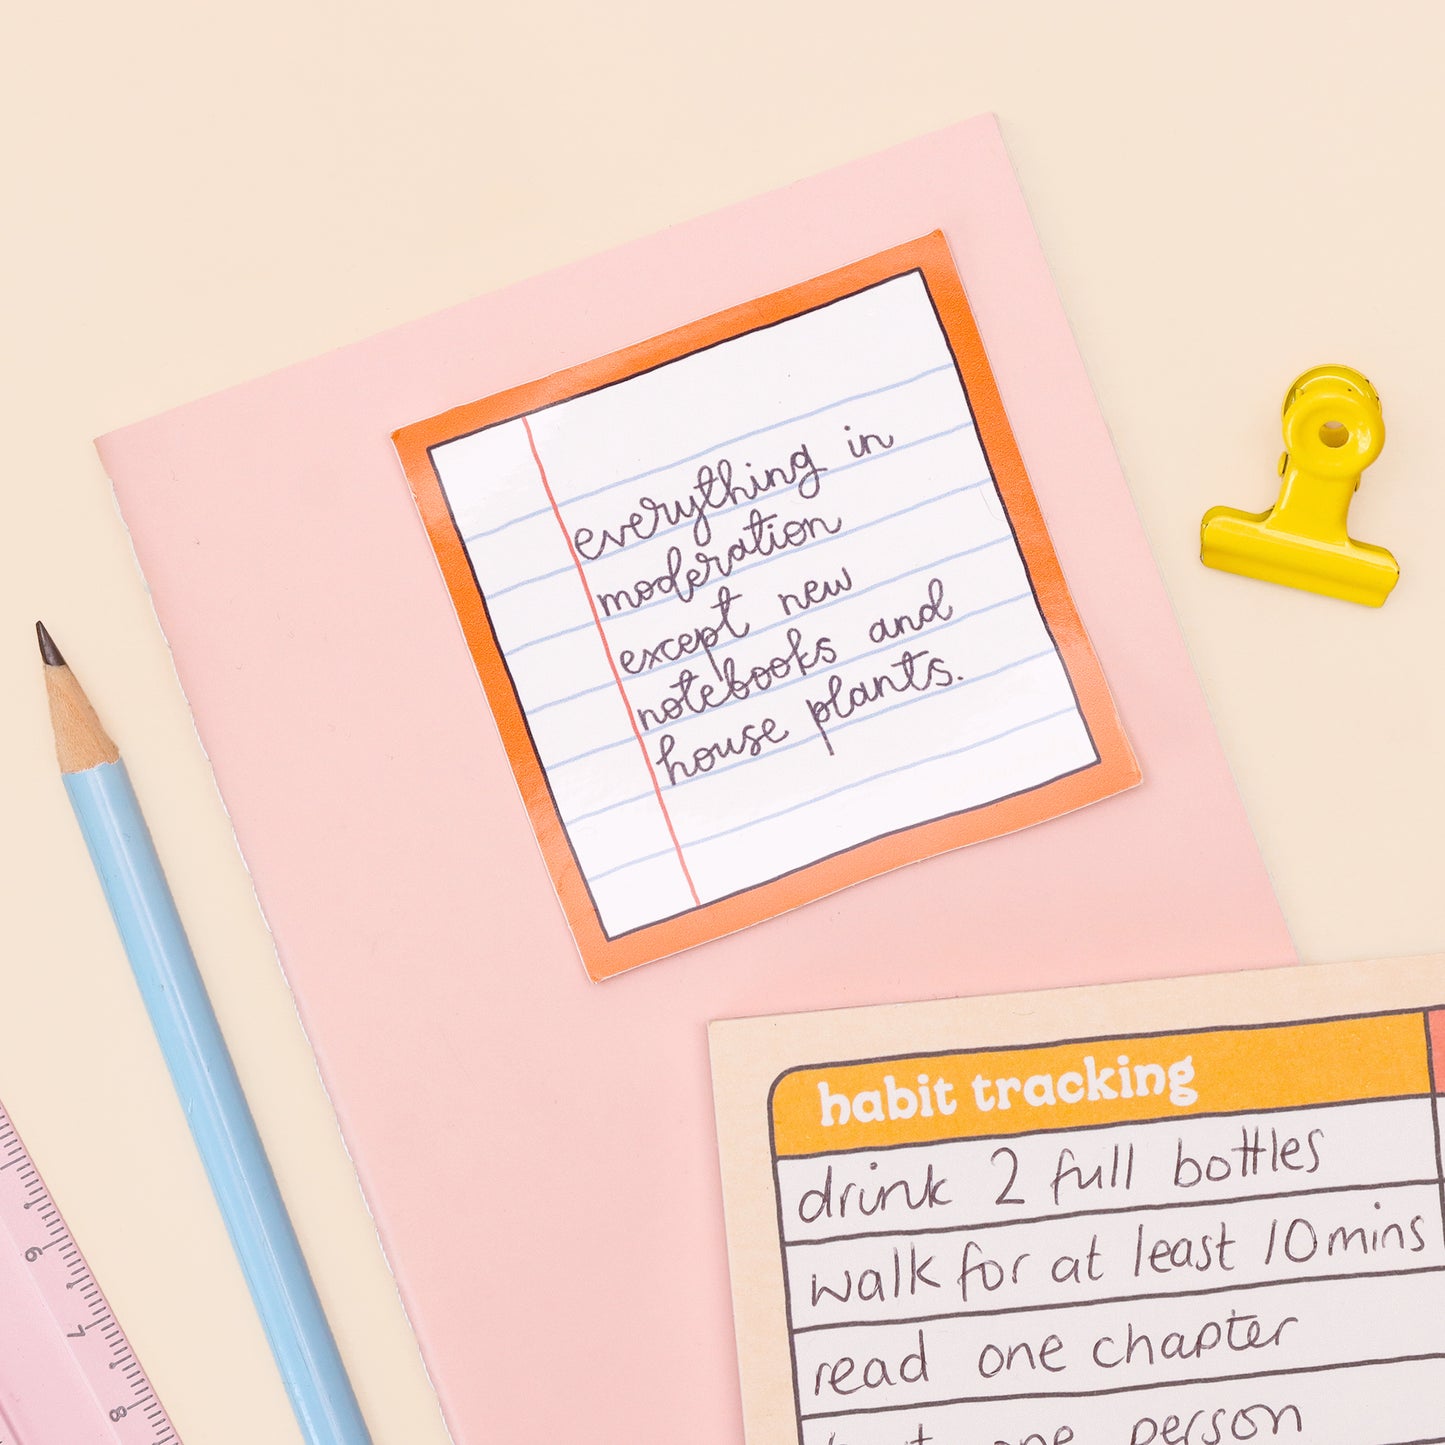 everything in
moderation
except new
notebooks and
house plants.
habit tracking
drink 2 full bottles
walk for at least 10mins
read one chapter
one person
6
7
8